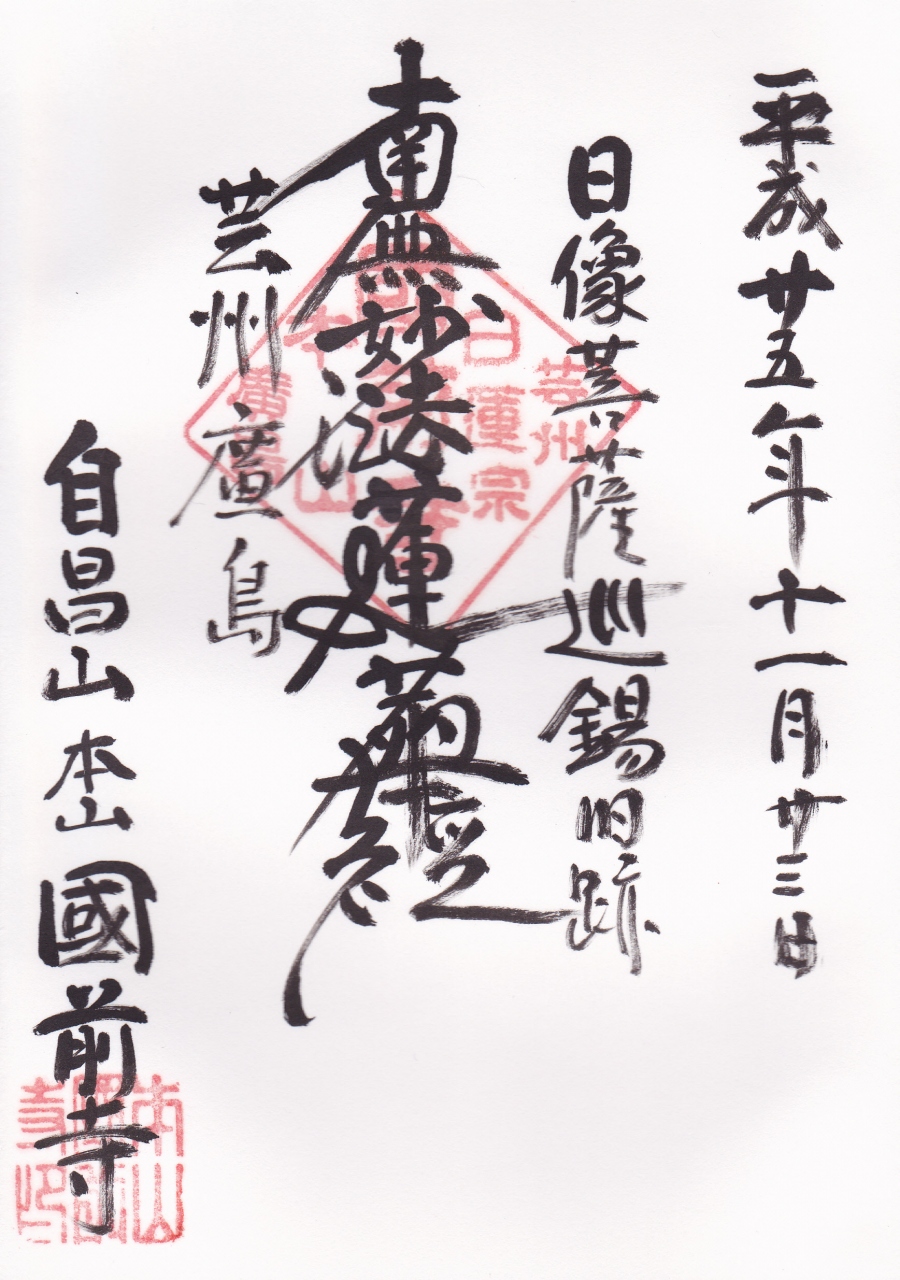 平成廿五年十一月廿三日
日像菩薩巡錫旧跡
南無妙法蓮華経
芸州廣島
自昌山本山國前寺
芸州
日蓮宗
本山
廣島
本山國前寺印